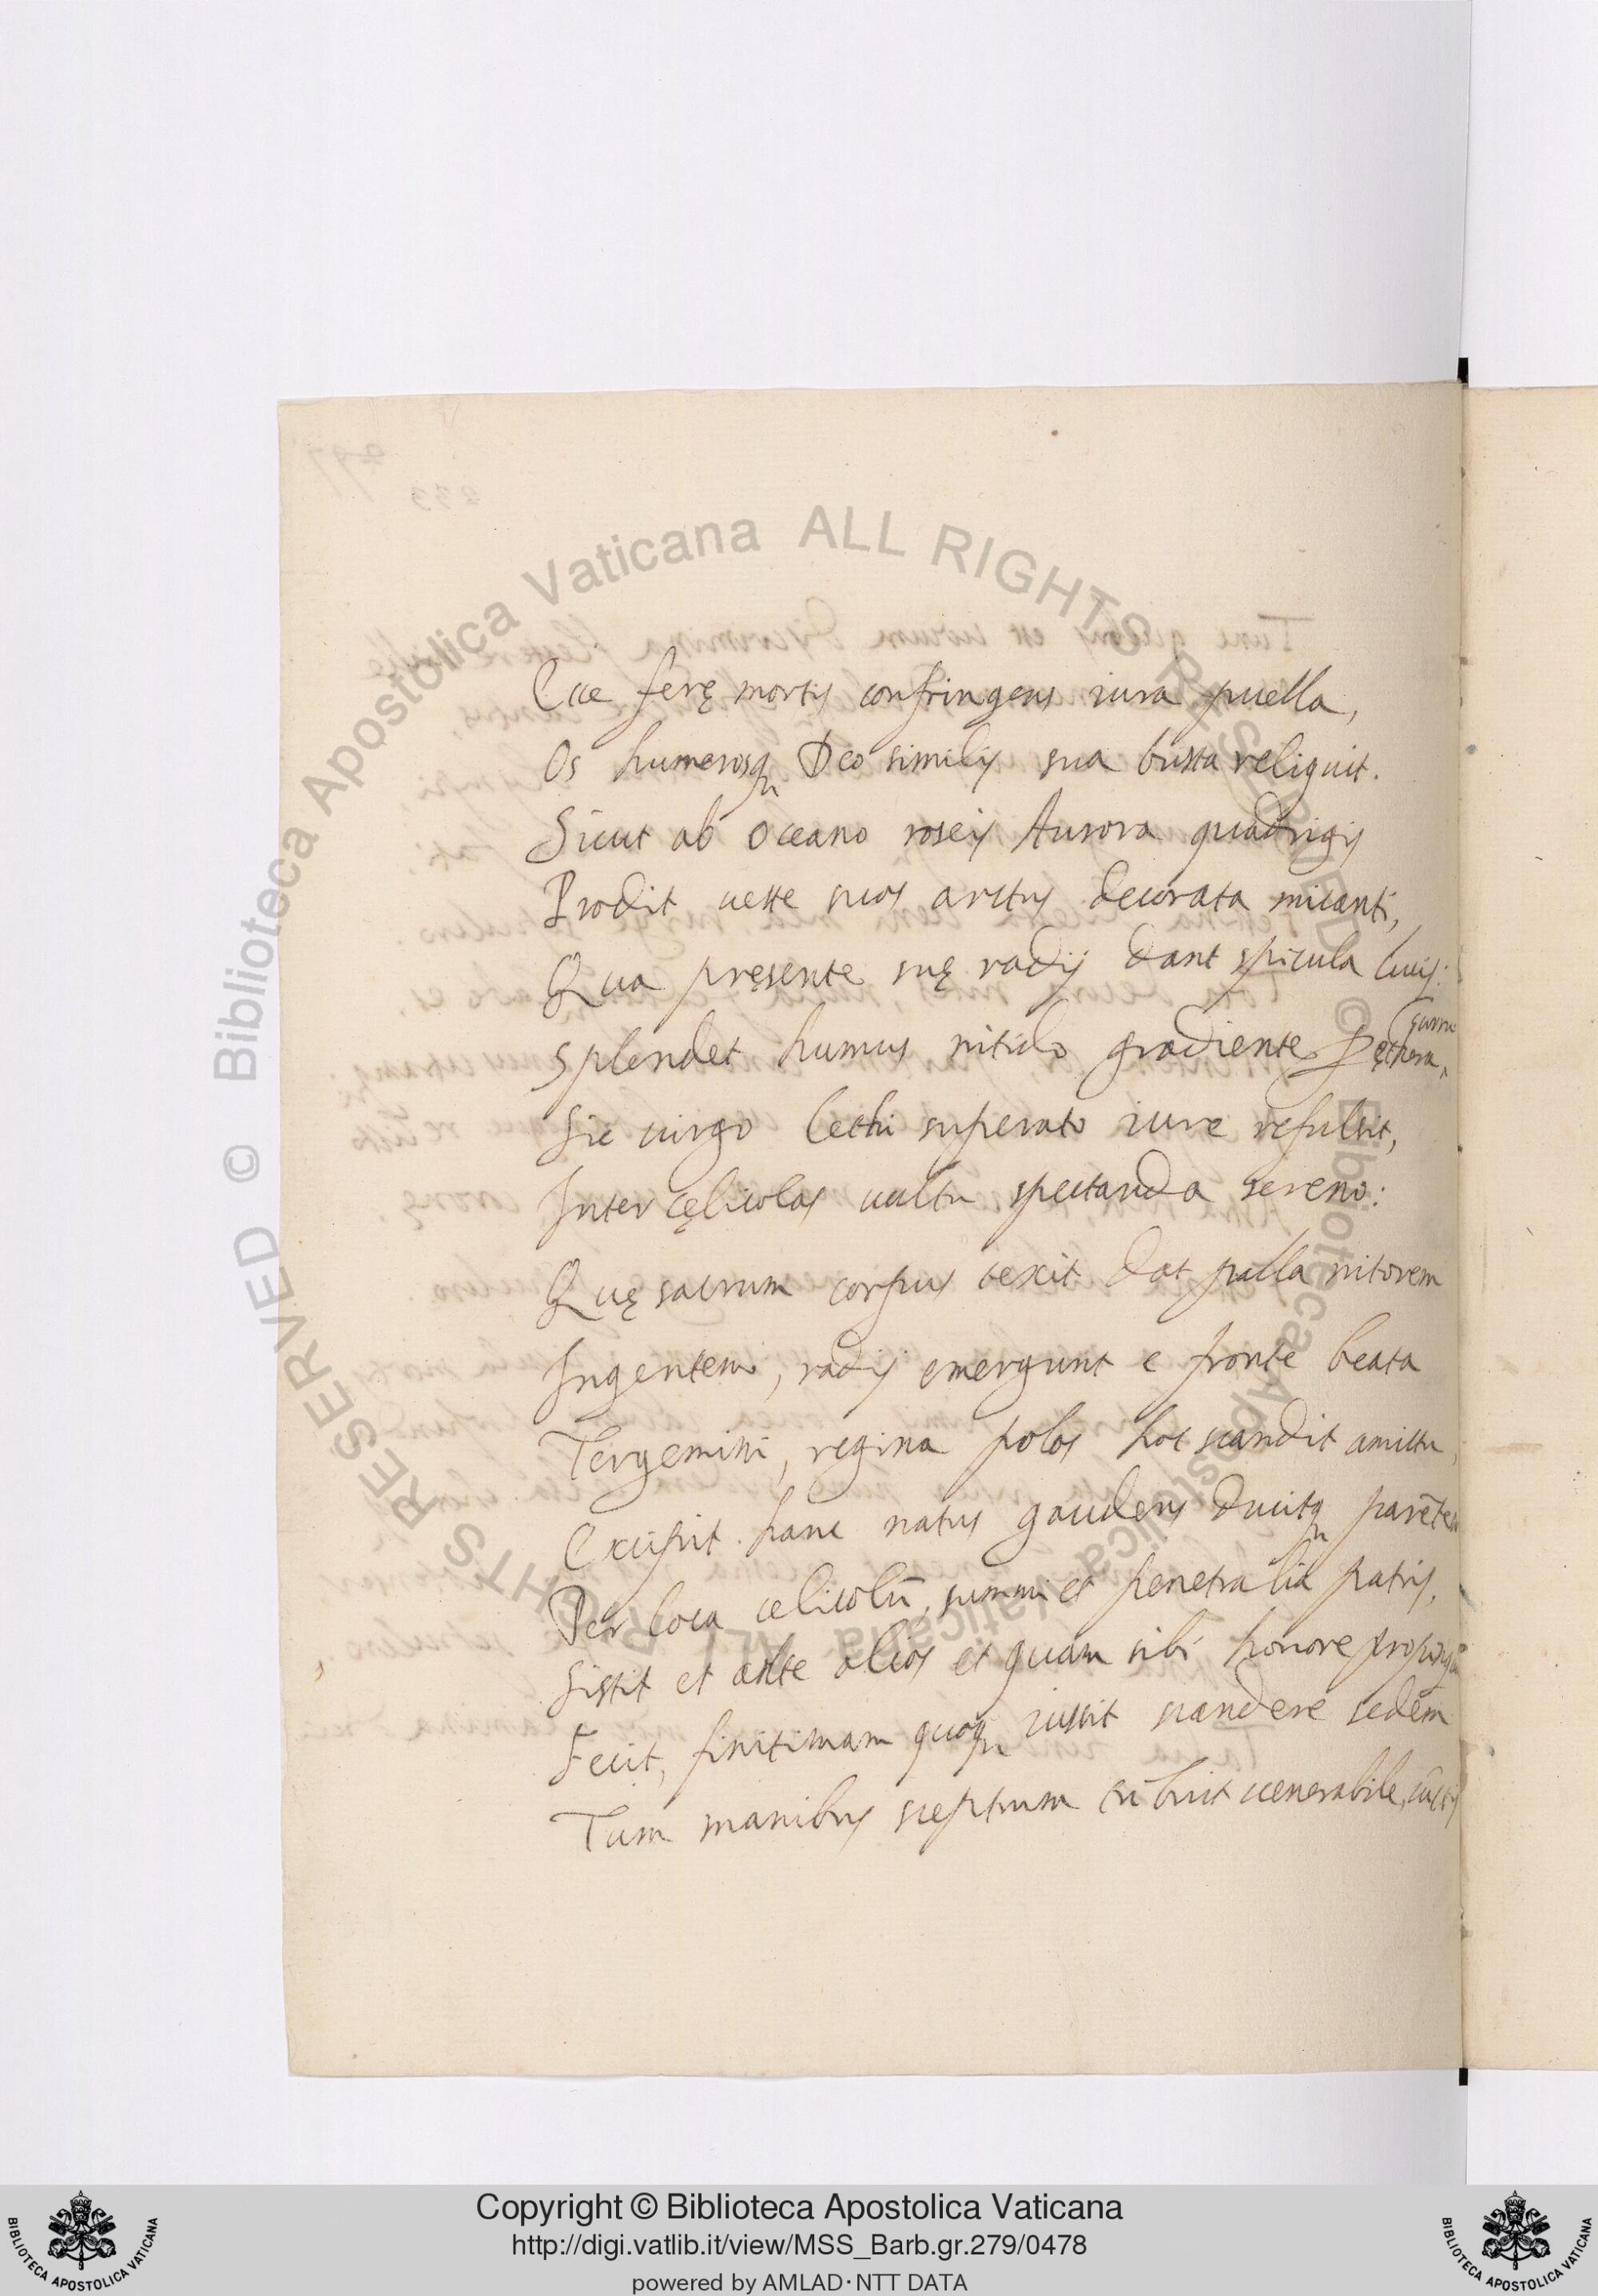 Ecce ferę mortis confringens iura puella,
Os humerosq₃ Deo similis sua busta reliquit.
Sicut ab Oceano roseis Aurora quadrigis
Prodit ueste suos artus decorata micanti,
Qua pręsente suę radij dant spicula lucis:
Splendet humus nitido gradiente per ęthera
Sic uirgo lethi superato iure refulsit,
Inter cęlicolas uultu spectanda sereno:
Quę sacrum corpus texit dat palla nitorem
Ingentem, radij emergunt e fronte beata
Tergemini, regina polos hoc scandit amictu,
Excipit hanc natus gaudens ducitq₃ parētem
Per loca celicolū, summi et penetralia patris,
Sistit et ante alios et quam sibi honore
Fecit, finitimam quoq₃ iussit scandere sedem
Tum manibus sceptrum tribuit uenerabile,
Copyright © Biblioteca Apostolica Vaticana
http://digi.vatlib.it/view/MSS_Barb.gr.279/0478
powered by AMLAD·NTT DATA
BIBLIOTECA APOSTOLICA VATICANA
BIBLIOTECA APOSTOLICA VATICANA
© Biblioteca Apostolica Vaticana ALL RIGHTS RESERVED © Biblioteca Apostolica Vaticana ALL RIGHTS RESERVED